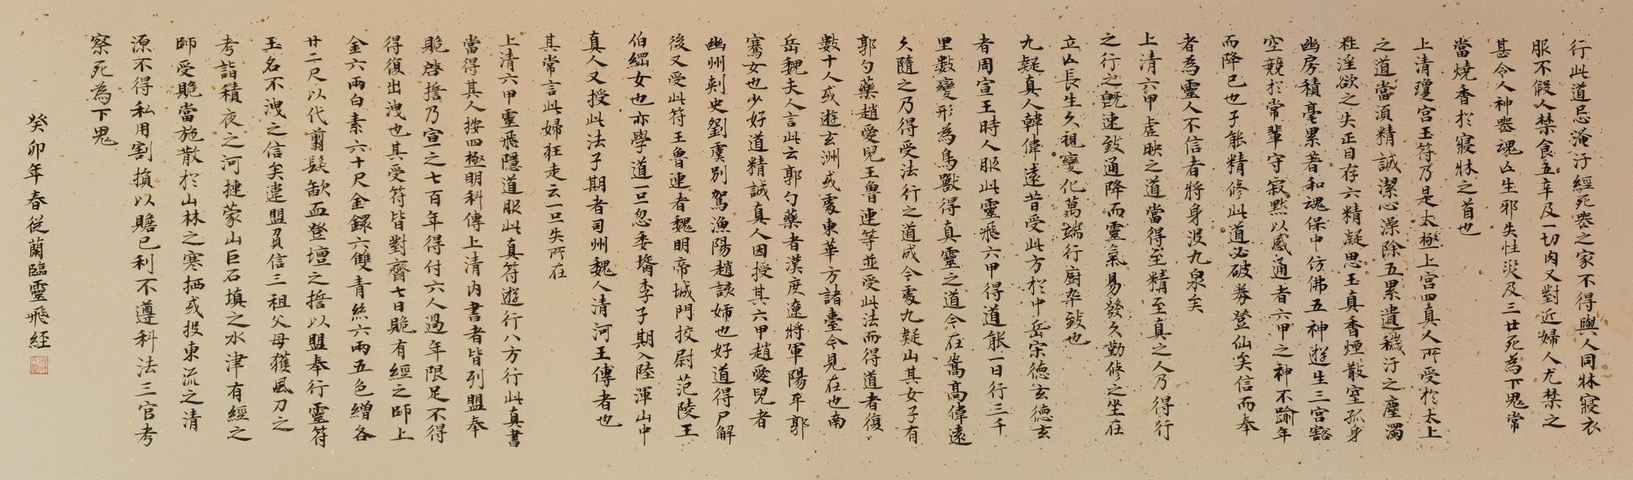 行此道忌淹汙經死喪之家不得與人同牀寢衣
服不假人禁食五辛及一切肉又對近婦人尤禁之
甚令人神喪魂亡生邪失性災及三世死為下鬼常
當燒香於寢牀之首也
上清瓊宮玉符乃是太極上宮四真人所受於太上
之道當須精誠潔心澡除五累遺穢汙之塵濁
杜淫欲之失正目存六精凝思玉真香煙散室孤身
幽房積毫累著和魂保中仿佛五神遊生三宮豁
空競於常輩守寂默以感通者六甲之神不踰年
而降已也子能精修此道必破券登仙矣信而奉
者為靈人不信者將身沒九泉矣
上清六甲虛映之道當得至精至真之人乃得行
之行之既速致通降而靈氣易發久勤修之坐在
立亡長生久視變化萬端行廚卒致也
九疑真人韓偉遠昔受此方於中岳宋德玄德玄
者周宣王時人服此靈飛六甲得道能一日行三千
里數變形為鳥獸得真靈之道今在嵩高偉遠
久隨之乃得受法行之道成今處九疑山其女子有
郭勺藥趙愛兒王魯連等並受此法而得道者復
數十人或遊玄洲或處東華方諸臺今見在也南
岳魏夫人言此云郭勺藥者漢度遼將軍陽平郭
騫女也少好道精誠真人因授其六甲趙愛兒者
幽州刾史劉虞別駕漁陽趙該姊也好道得尸解
後又受此符王魯連者魏明帝城門挍尉范陵王
伯綱女也亦學道一旦忽委壻李子期入陸渾山中
真人又授此法子期者司州魏人清河王傳者也
其常言此婦狂走云一旦失所在
上清六甲靈飛隱道服此真符遊行八方行此真書
當得其人按四極明科傳上清內書者皆列盟奉
貺啓擔乃宣之七百年得付六人過年限足不得
得復出洩也其受符皆對齋七日貺有經之師上
金六兩白素六十尺金鐶六雙青絲六兩五色繒各
廿二尺以代翦髮歃血登壇之擔以盟奉行靈符
玉名不洩之信矣違盟負信三祖父母獲風刀之
考詣積夜之河揵蒙山巨石填之水津有經之
師受貺當施散於山林之寒栖或投東流之清
源不得私用割損以贍己利不遵科法三官考
察死為下鬼
癸卯年春從蘭臨靈飛經